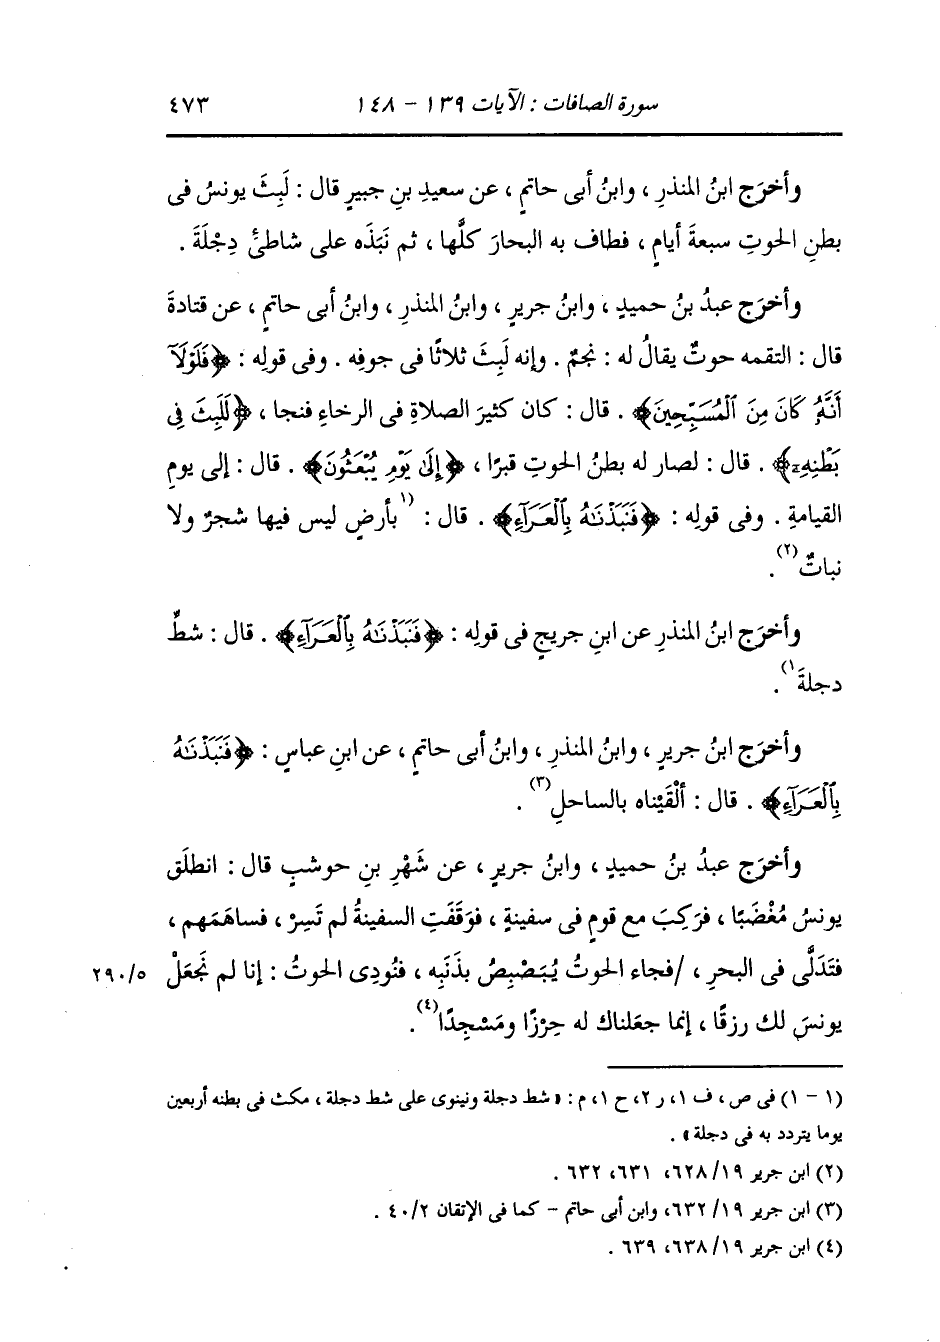 سورة الصافات : الآيات ١٣٩ - ١٤٨ ٤٧٣
وأخرَج ابنُ المنذرِ ، وابنُ أبى حاتمٍ ، عن سعيدِ بنِ جبيرٍ قال : لَبِثَ يونسُ فى
بطنِ الحوتِ سبعةَ أيامٍ ، فطاف به البحارَ كلَّها ، ثم نَبَذَه على شاطئِ دِجْلَةَ .
وأخرَج عبدُ بنُ حميدٍ ، وابنُ جريرٍ ، وابنُ المنذرِ ، وابنُ أبى حاتمٍ ، عن قتادةَ
قال : التقمه حوتٌ يقالُ له : نجمٌ . وإنه لَبِثَ ثلاثًا فى جوفِه . وفى قولِه : ﴿فَلَوْلَآ
أَنَّهُۥ كَانَ مِنَ ٱلْمُسَبِّحِينَ﴾ . قال : كان كثيرَ الصلاةِ فى الرخاءِ فنجا ، ﴿لَلَبِثَ فِى
بَطْنِهِۦٓ﴾ . قال : لصار له بطنُ الحوتِ قبرًا ، ﴿إِلَىٰ يَوْمِ يُبْعَثُونَ﴾ . قال : إلى يومِ
القيامةِ . وفى قولِه : ﴿فَنَبَذْنَـٰهُ بِٱلْعَرَآءِ﴾ . قال : (١بأرضٍ ليس فيها شجرٌ ولا
نباتٌ(٢) .
وأخرَج ابنُ المنذرِ عن ابنِ جريجٍ فى قولِه : ﴿فَنَبَذْنَـٰهُ بِٱلْعَرَآءِ﴾ . قال : شطِّ
دجلةَ١) .
وأخرَج ابنُ جريرٍ ، وابنُ المنذرِ ، وابنُ أبى حاتمٍ ، عن ابنِ عباسٍ : ﴿فَنَبَذْنَـٰهُ
بِٱلْعَرَآءِ﴾ . قال : ألْقَيْناه بالساحلِ(٣) .
وأخرَج عبدُ بنُ حميدٍ ، وابنُ جريرٍ ، عن شَهْرِ بنِ حوشبٍ قال : انطلَق
يونسُ مُغْضَبًا ، فرَكِبَ مع قومٍ فى سفينةٍ ، فوَقَفَتِ السفينةُ لم تَسِرْ ، فساهَمَهم ،
فتَدَلَّى فى البحرِ ، /فجاء الحوتُ يُبَصْبِصُ بذَنَبِه ، فنُودِى الحوتُ : إنا لم نَجعَلْ ٢٩٠/٥
يونسَ لك رزقًا ، إنما جعَلناك له حِرْزًا ومَسْجِدًا(٤) .
(١ - ١) فى ص ، ف ١ ، ر ٢ ، ح ١ ، م : « شط دجلة ونينوى على شط دجلة ، مكث فى بطنه أربعين
يوما يتردد به فى دجلة » .
(٢) ابن جرير ١٩/ ٦٢٨، ٦٣١، ٦٣٢ .
(٣) ابن جرير ١٩/ ٦٣٢، وابن أبى حاتم - كما فى الإتقان ٢/ ٤٠ .
(٤) ابن جرير ١٩/ ٦٣٨، ٦٣٩ .